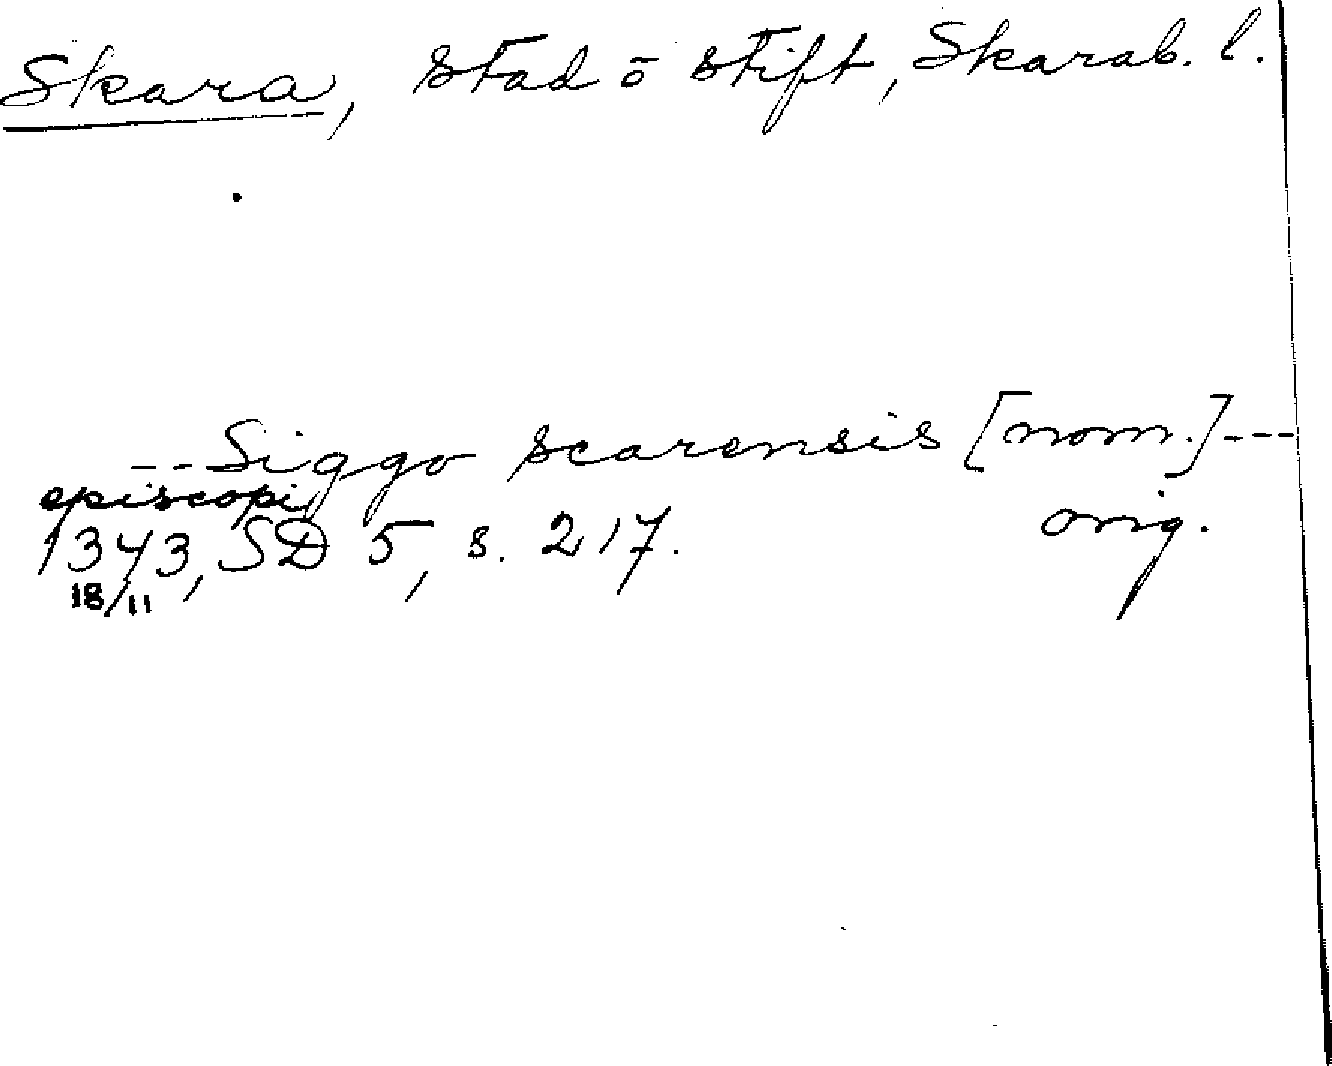 Skara, stad o stift, Skarab. l.
--- Siggo scarensis [nom.] ---
episcopi
1343, SD 5, s. 217. orig.
18/11